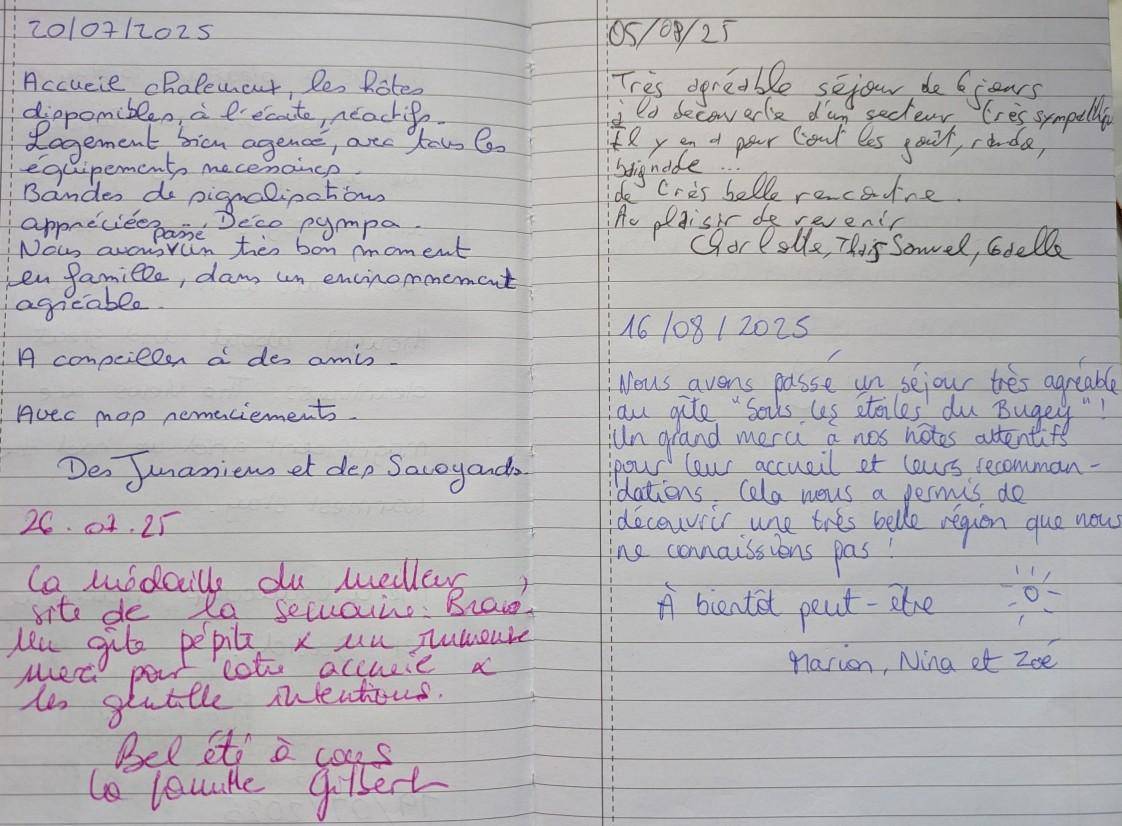 20/07/2025
Accueil chaleureux, les hôtes
disponibles, à l'écoute, réactifs.
Logement bien agencé, avec tous les
équipements necessaires.
Bandes de signalisations
appréciées. Déco sympa.
Nous avons passé un très bon moment
en famille, dans un environnement
agréable.
A conseiller à des amis.
Avec nos remerciements.
Des Jurassiens et des Savoyards
26.07.25
La médaille du meilleur
site de la semaine. Bravo.
Un gîte pépite & un immense
merci pour votre accueil &
les gentille intentions.
Bel été à vous
La famille Gilbert
05/08/25
Très agréable séjour de 6 jours
à la découverte d'un secteur très sympathique
Il y en a pour tout les goût, rando,
baignade ...
de très belle rencontre.
Au plaisir de revenir
Charlotte, Samuel,
16/08/2025
Nous avons passé un séjour très agréable
au gîte "Sous les étoiles du Bugey" !
Un grand merci à nos hôtes attentifs
pour leur accueil et leurs recomman-
dations. Cela nous a permis de
découvrir une très belle région que nous
ne connaissions pas !
À bientôt peut-être
Marion, Nina et Zoé